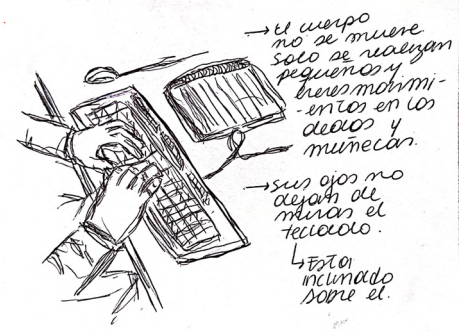 → El cuerpo
no se mueve
solo se realizan
pequeños y
leves movimi-
-entos en los
dedos y
muñecas.
→ sus ojos no
dejan de
miras el
teclado.
↳ Esta
inclinado
sobre el.